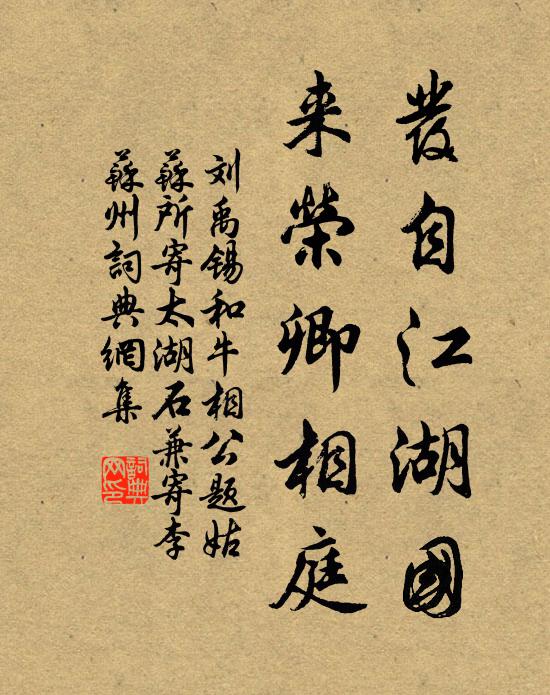 發自江湖國
来榮卿相庭
刘禹锡和牛相公題姑
蘇所寄太湖石兼寄李
蘇州詞典網集
詞典
网印